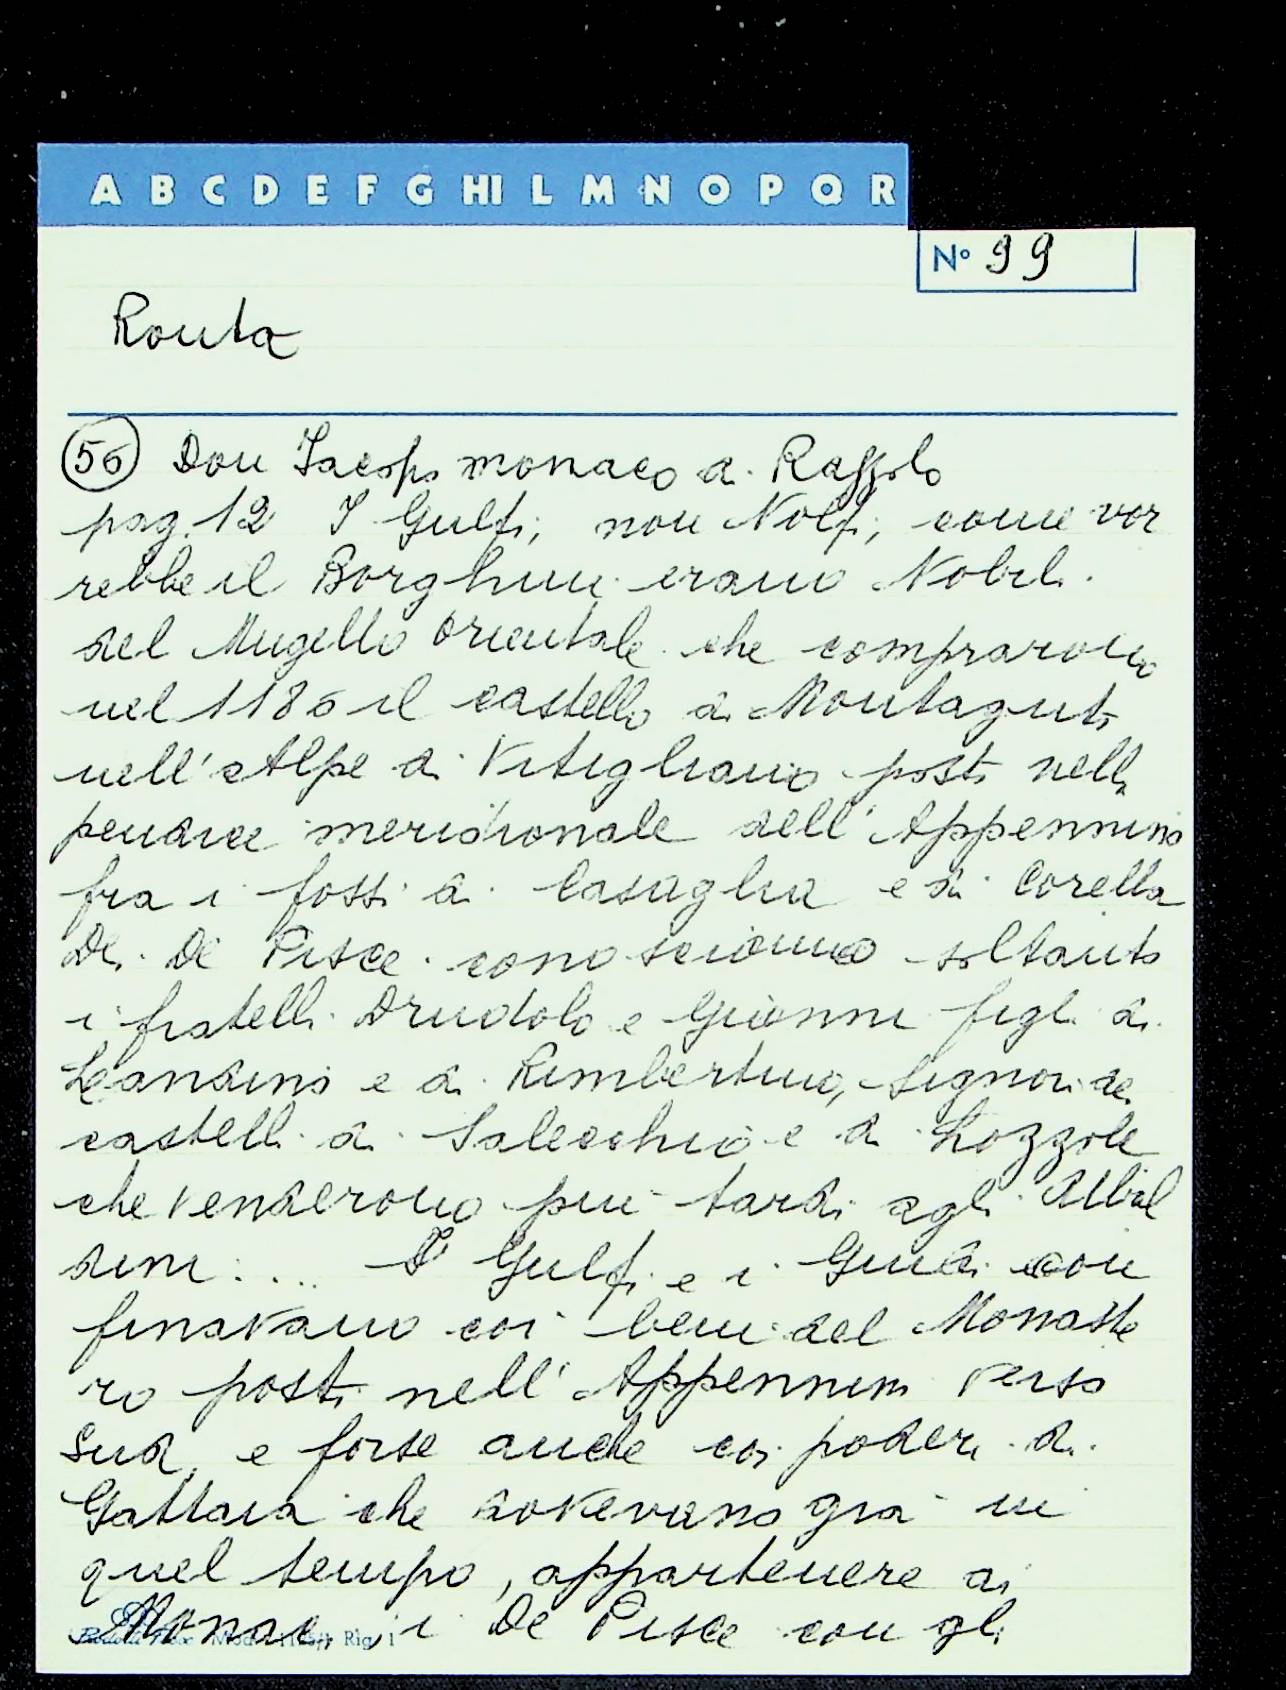 A B C D E F G HI L M N O P Q R
N° 99
Ronta
56 Don Jacopo monaco di Razzolo
pag. 12 I Gulfi, non Nolfi, come vor
rebbe il Borghini erano Nobili
del Mugello orientale che comprarono
nel 1186 il castello di Montaguto
nell'Alpe di Vitigliano posto nella
pendice meridionale dell'Appennino
fra i fossi di Casaglia e di Corella
Dei De Pisce conosciamo soltanto
i fratelli Drudolo e Gianni figli di
Landino e di Rimbertino, signori dei
castelli di Salecchio e di Lozzole
che venderono più tardi agli Ubal
dini .... I Gulfi e i Guidi con
finavano coi beni del Monaste
ro posti nell'Appennino verso
Sud, e forse anche coi poderi di
Gattaia che dovevano già in
quel tempo, appartenere ai
Monaci, i De Pisce con gli